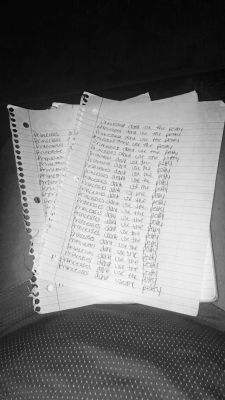 Princesses
Princesses
Princesses
Princesses
Princesses
Princesses
Princesses dont use the potty
Princesses dont use the potty
Princesses dont use the potty
Princesses dont use the potty
Princesses dont use the potty
Princesses dont use the potty
Princesses dont use the potty
Princesses dont use the potty
Princesses dont use the potty
Princesses dont use the potty
Princesses dont use the potty
Princesses dont use the potty
Princesses dont use the potty
Princesses dont use the potty
Princesses dont use the potty
Princesses dont use the potty
Princesses dont use the potty
Princesses dont use the potty
Princesses dont use the potty
Princesses dont use the potty
Princesses dont use the potty
Princesses dont use the potty
Princesses dont use the potty